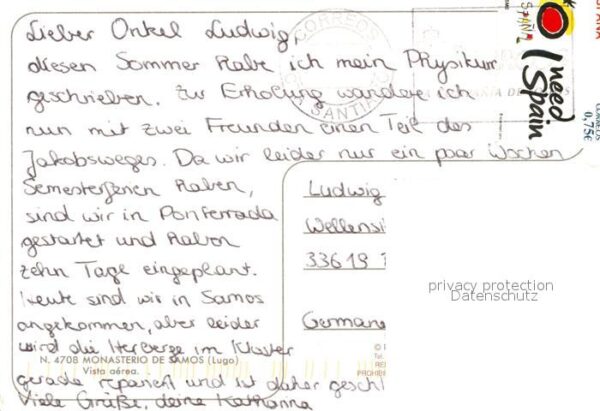 Lieber Onkel Ludwig,
diesen Sommer habe ich mein Physikum
geschrieben. Zur Erholung wandere ich
nun mit zwei Freunden einen Teil des
Jakobsweges. Da wir leider nur ein paar Wochen
Semesterferien haben,
sind wir in Ponferrada
gestartet und haben
zehn Tage eingeplant.
Heute sind wir in Samos
angekommen, aber leider
wird die Herberge im Kloster
gerade repariert und ist daher geschl
Viele Grüße, deine Katharina
N. 4708 MONASTERIO DE SAMOS (Lugo)
Vista aérea.
Ludwig
Wellensi
33619
Germany
CORREOS
SANTIA
I need
Spain
ESPAÑA
CORREOS
0,75€
privacy protection
Datenschutz
© 
Tel.
PROHIB